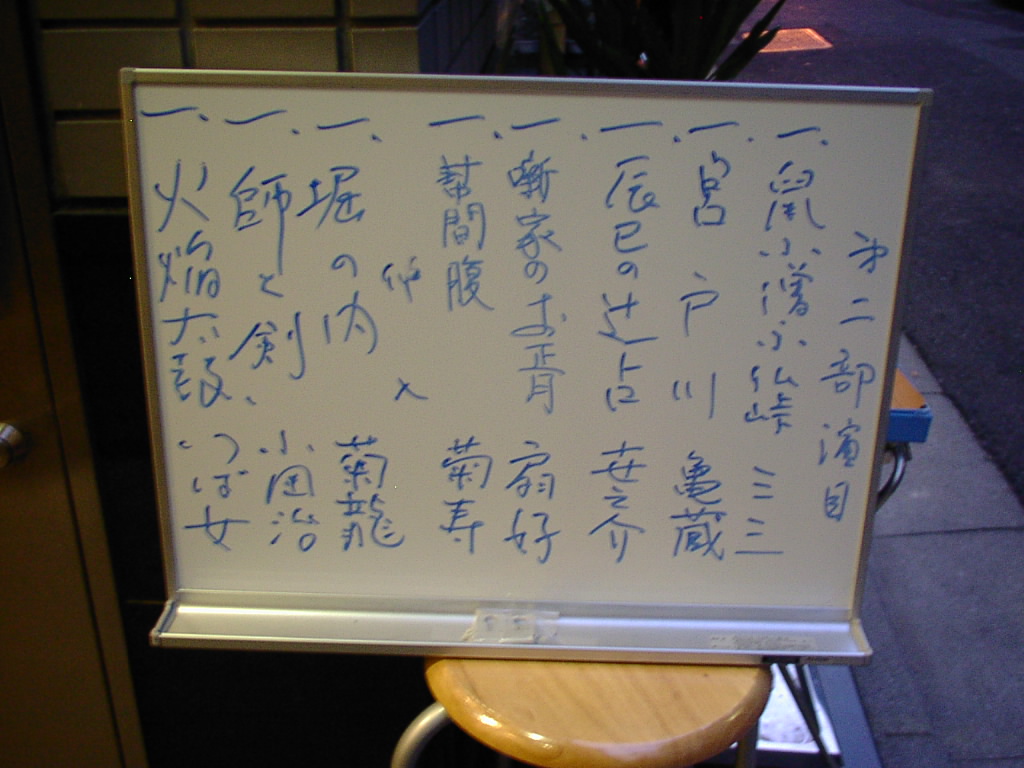 第二部演目
一、鼠小僧小仏峠 三三
一、宮戸川 亀蔵
一、辰巳の辻占 世之介
一、噺家のお背 扇好
一、幇間腹 菊寿
仲入
一、堀の内 菊龍
一、師と剣 小円治
一、火焔太鼓 つば女